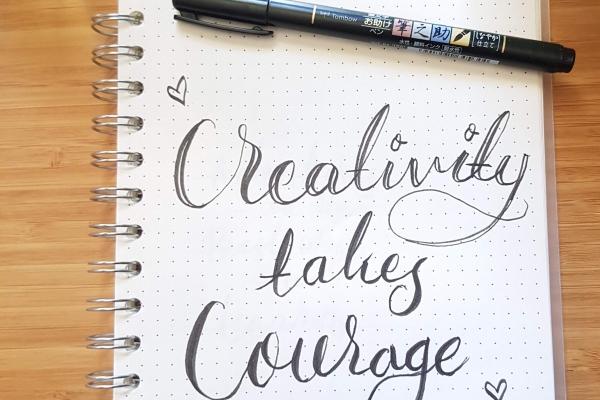 Tombow お助け ペン 筆之助 しなやか仕立て
水性・顔料インク
Creativity
takes
Courage